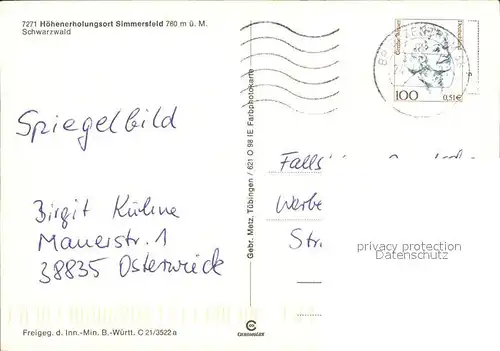 7271 Höhenerholungsort Simmersfeld 760 m ü. M.
Schwarzwald
100
0,51€
Spiegelbild
Birgit Kühne
Mauerstr. 1
38835 Osterwieck
Gebr. Metz, Tübingen / 621 O 98 IE Farbphotokarte
Falls
Werbe
Str
privacy protection
Freigeg. d. Inn.-Min. B.-Württ. C 21/3522 a